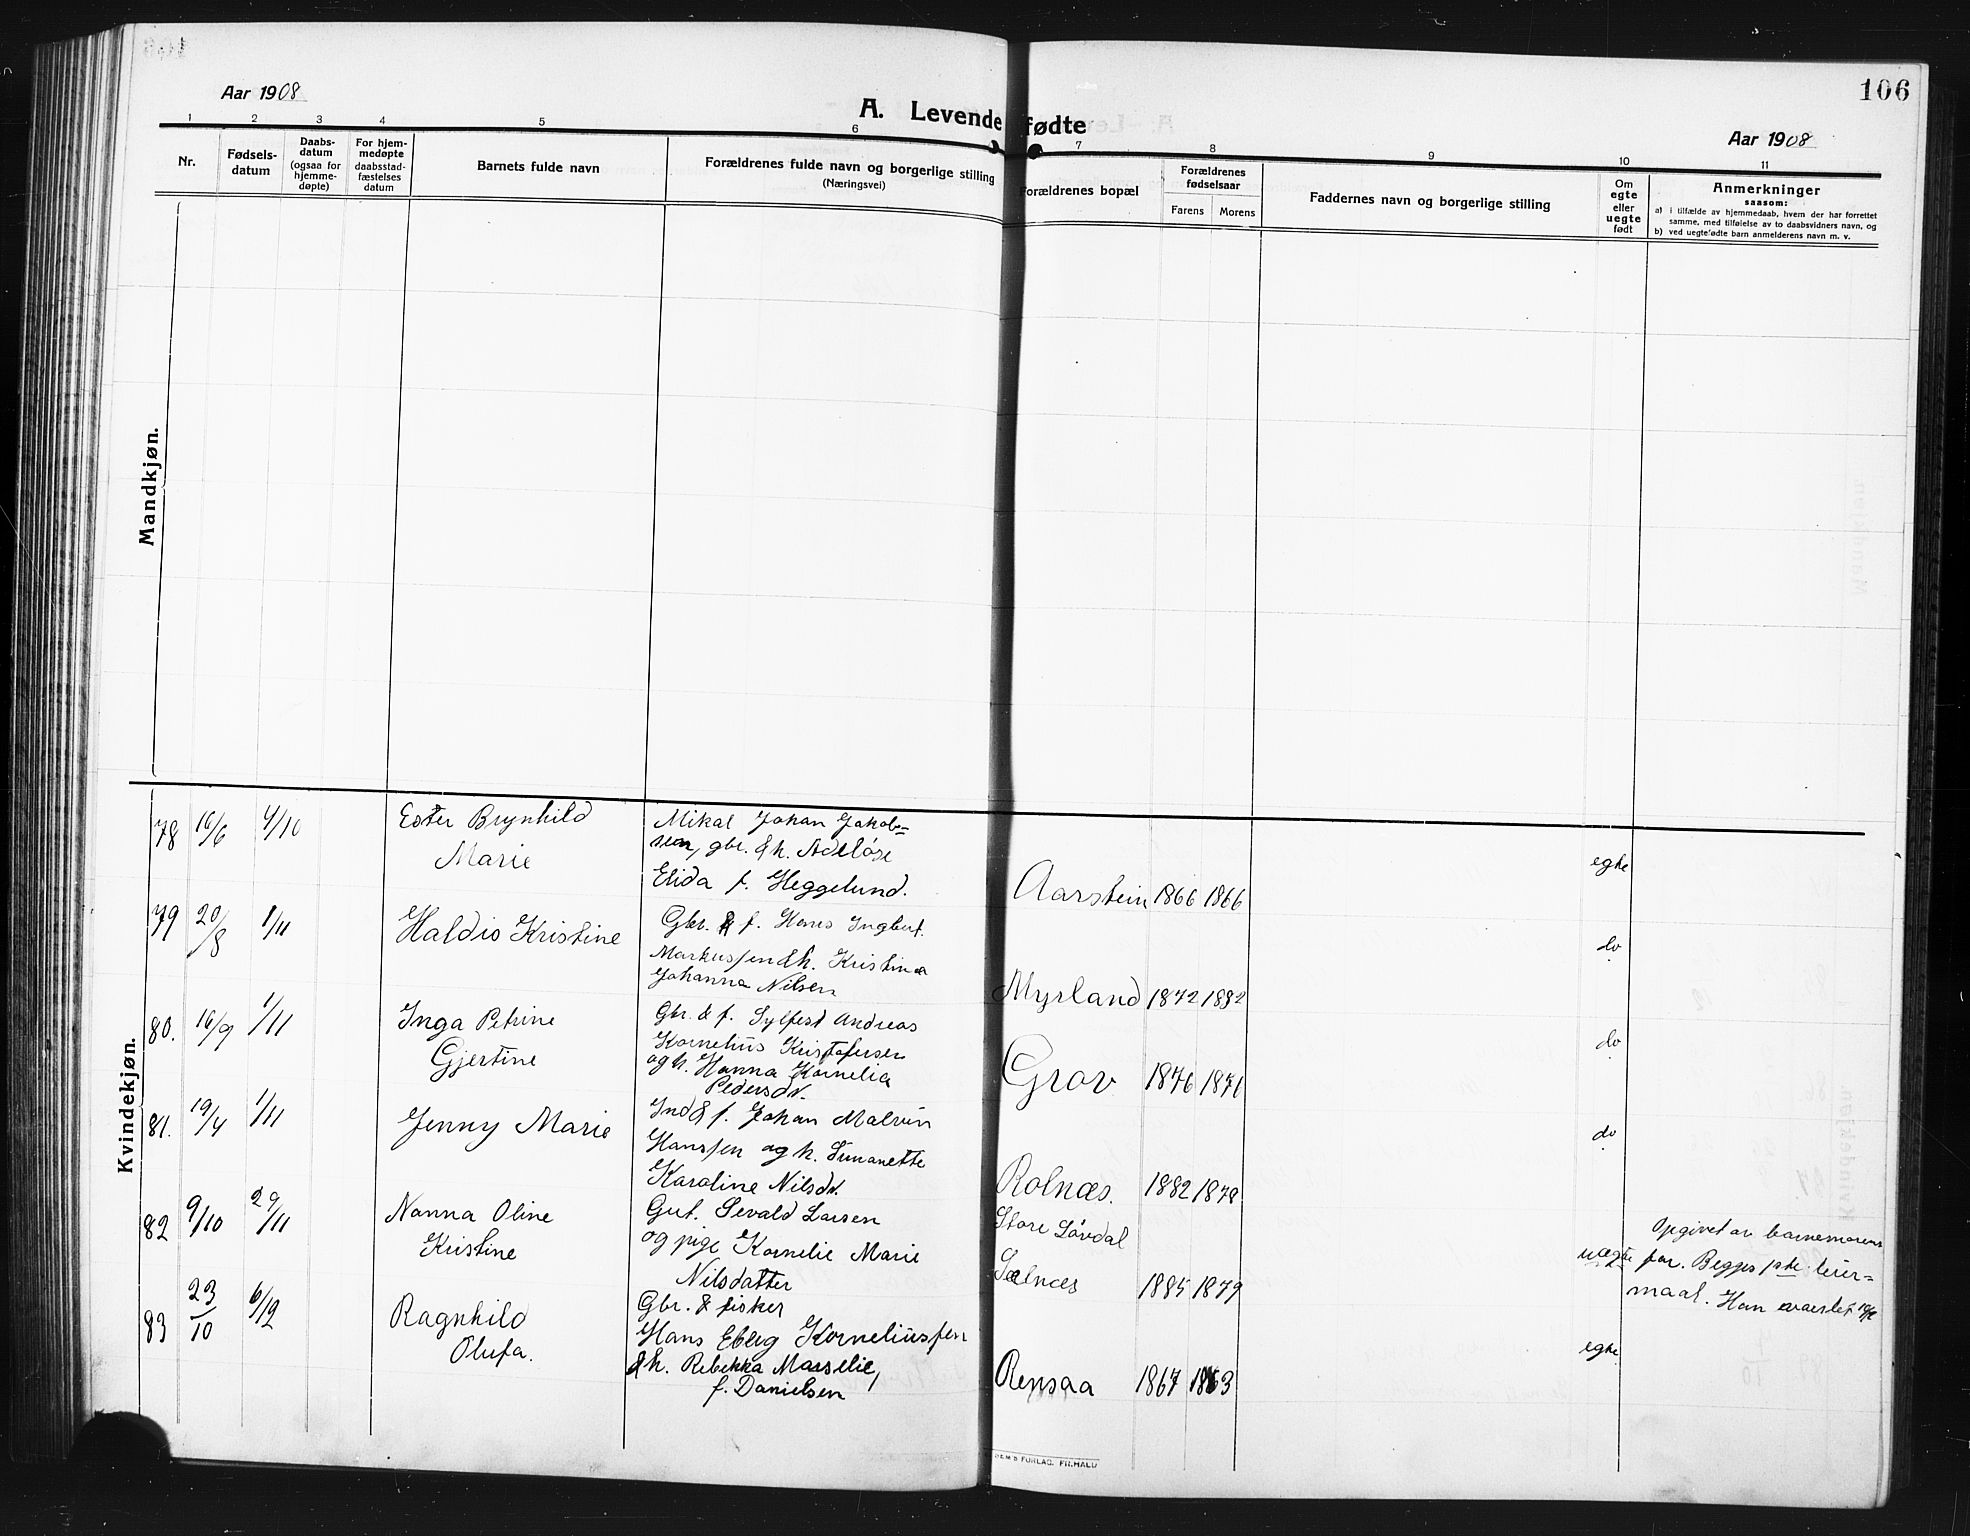 106
Aar 1908
A. Levende fødte
Aar 1908
1 2 3 4 5 6 7 8 9 10 11
Nr.
Fødsels-
datum
Daabs-
datum
(ogsaa for
hjemme-
døpte)
For hjem-
medøpte
daabsstad-
fæstelses
datum
Barnets fulde navn
Forældrenes fulde navn og borgerlige stilling
(Næringsvei)
Forældrenes bopæl
Forældrenes
fødselsaar
Farens Morens
Faddernes navn og borgerlige stilling
Om
egte
eller
uegte
født
Anmerkninger
saasom:
a) i tilfælde av hjemmedaab, hvem der har forrettet
samme, med tilføielse av to daabsvidners navn, og
b) ved uegtefødte barn anmelderens navn m. v.
Mandkjøn.
Kvindekjøn.
78 16/6 4/10
Ester Brynhild
Marie
Mikal Johan Jakob-
sen, gbr. & h. Adeløse
Elida f. Heggelund.
Aarstein 1866 1866
egte
79 20/8 1/11
Haldis Kristine
Gbr. & f. Hans Ingbert
Markussen & h. Kristine
Johanna Nilsen
Myrland 1872 1882
do
80. 16/9 1/11
Inga Petrine
Gjertine
Gbr. & f. Sylfest Andreas
Kornelius Kristofersen
og h. Hanna Kornelia
Pedersdt.
Grov 1876 1871
do
81. 19/4 1/11
Jenny Marie
Ind & f. Johan Malvin
Hanssen og h. Simanette
Karoline Nilsdt.
Rolnæs. 1882 1878
do
82 9/10 29/11
Nanna Oline
Kristine
Gut. Sevald Larsen
og pige Kornelie Marie
Nilsdatter
Store Løvdal
Sælnæs 1885 1879
uegte
Opgivet av barnemorens
far. Begges 1ste leier-
maal.
83 23/10 6/12
Ragnhild
Olufa.
Gbr. & fisker
Hans Eberg Korneliussen
& h. Rebekka Marselie,
f. Danielsen
Rensaa 1867 1863
egte
FORLAG. FR.HALD